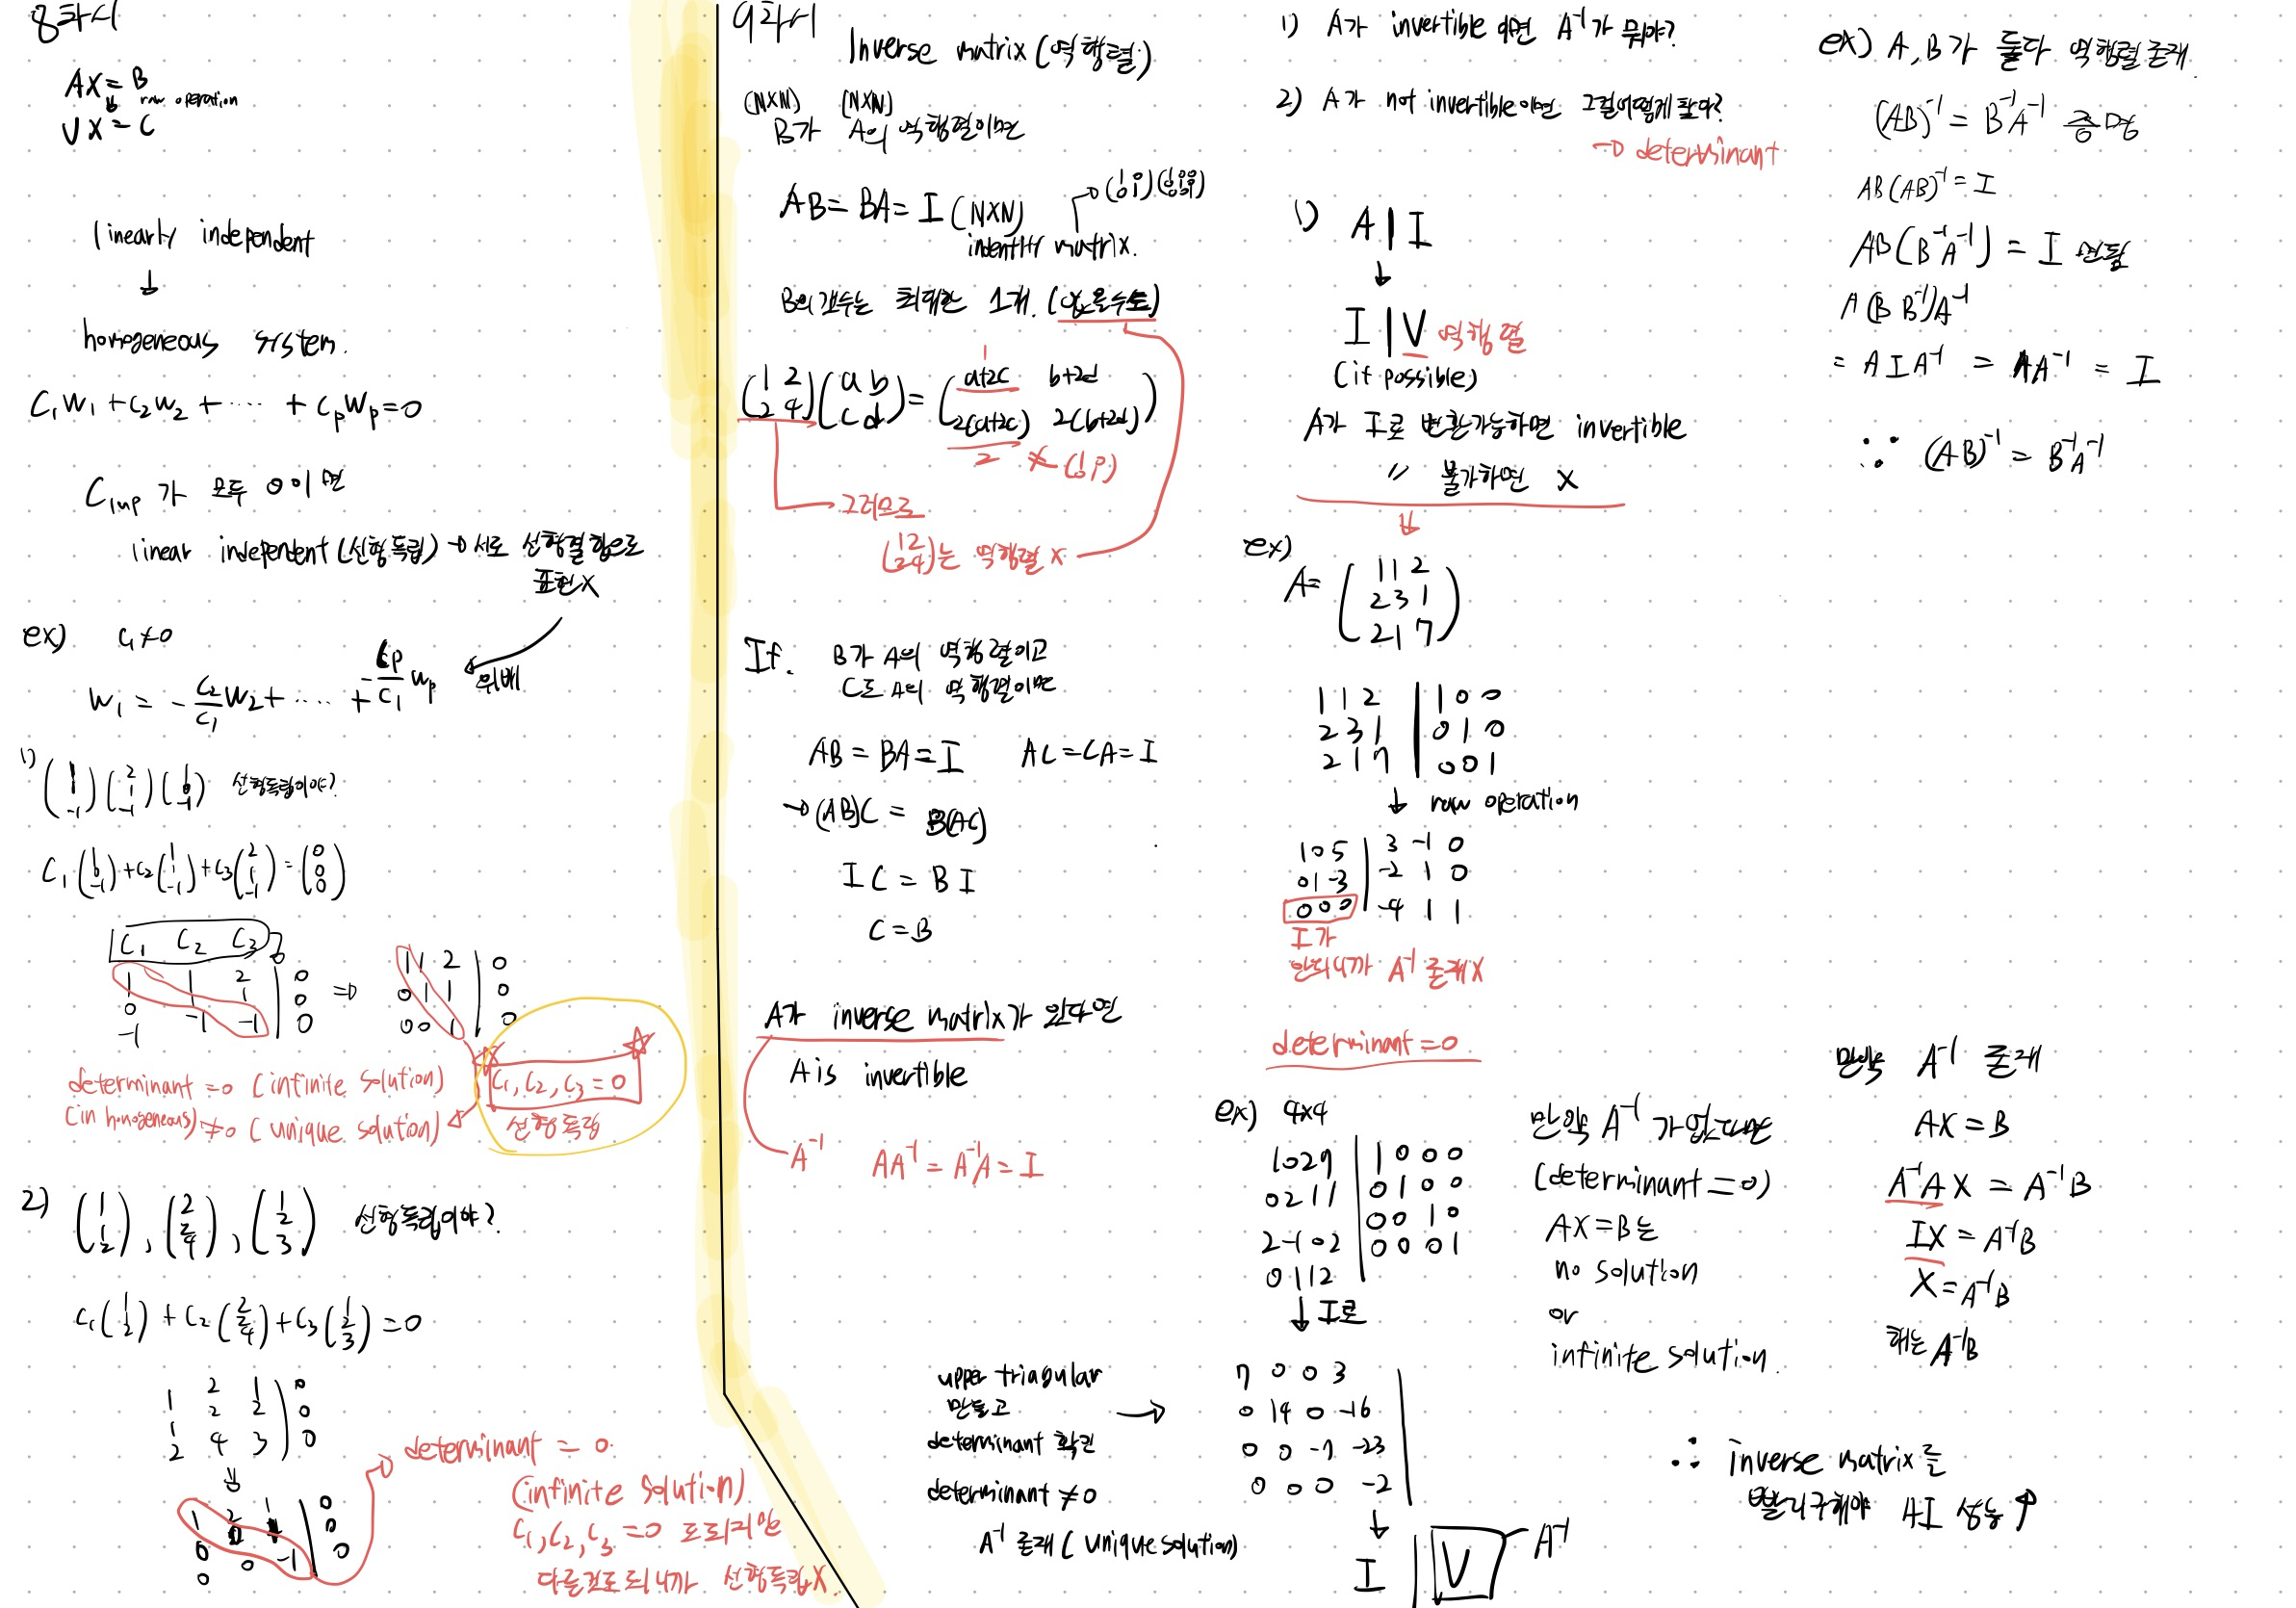 8차시
AX = B
↓ row operation
UX = C
linearly independent
↓
homogeneous system.
C₁W₁ + C₂W₂ + ···· + CₚWₚ = 0
C₁~p 가 모두 0이면
linear independent (선형독립) → 서로 선형결합으로
표현 X
ex) C₁ ≠ 0
W₁ = - C₂/C₁ W₂ + ···· + - Cp/C₁ Wp 위배
선형독립이야?
C₁ C₂ C₃
1 1 2 | 0
0 -1 1 | 0
-1 -1 -1 | 0
⇒
1 1 2 | 0
0 1 1 | 0
0 0 1 | 0
determinant = 0 (infinite solution)
(in homogeneous) ≠ 0 (unique solution)
C₁, C₂, C₃ = 0
선형독립
2) (1 1 2), (2 2 4), (1 2 3) 선형독립이야?
C₁(1 1 2) + C₂(2 2 4) + C₃(1 2 3) = 0
1 2 1 | 0
1 2 2 | 0
2 4 3 | 0
↓
determinant = 0.
(infinite solution)
C₁, C₂, C₃ = 0 도 되지만
다른것도 되니까 선형독립 X
9차시
Inverse matrix (역행렬)
(N×N) (N×N)
B가 A의 역행렬이면
AB = BA = I (N×N)
indentity matrix.
B의 갯수는 최대한 1개. (없을수도)
(1 2 2 4)(a b c d) = (a+2c b+2d 2(a+2c) 2(b+2d))
1
2 ≠ (1 0 0 1)
그러므로
(1 2 2 4)는 역행렬 X
If. B가 A의 역행렬이고
C도 A의 역행렬이면
AB = BA = I AC = CA = I
→ (AB)C = B(AC)
IC = BI
C = B
A가 inverse matrix가 있다면
A is invertible
A⁻¹ AA⁻¹ = A⁻¹A = I
1) A가 invertible 이면 A⁻¹가 뭐야?
2) A가 not invertible이면 그걸어떻게 알아?
→ determinant
1) A | I
↓
I | V 역행렬
(if possible)
A가 I로 변환가능하면 invertible
〃 불가하면 X
ex)
A = (1 1 2 2 3 1 2 1 7)
1 1 2 | 1 0 0
2 3 1 | 0 1 0
2 1 7 | 0 0 1
↓ row operation
1 0 5 | 3 -1 0
0 1 -3 | -2 1 0
0 0 0 | -4 1 1
I가
안되니까 A⁻¹ 존재X
determinant = 0
ex) 4×4
1 0 2 9 | 1 0 0 0
0 2 1 1 | 0 1 0 0
2 -1 0 2 | 0 0 1 0
0 1 1 2 | 0 0 0 1
↓ I로
7 0 0 3
0 14 0 -16
0 0 -7 -23
0 0 0 -2
↓
I | V A⁻¹
upper triabular
만들고
determinant 확인
determinant ≠ 0
A⁻¹ 존재 (unique solution)
만약 A⁻¹ 가 없다면
(determinant = 0)
AX = B는
no solution
or
infinite solution.
ex) A, B가 둘다 역행렬 존재.
(AB)⁻¹ = B⁻¹A⁻¹ 증명
AB(AB)⁻¹ = I
AB(B⁻¹A⁻¹) = I 면됨
A(BB⁻¹)A⁻¹
= AIA⁻¹ = AA⁻¹ = I
∴ (AB)⁻¹ = B⁻¹A⁻¹
만약 A⁻¹ 존재
AX = B
A⁻¹AX = A⁻¹B
IX = A⁻¹B
X = A⁻¹B
해는 A⁻¹B
∴ inverse matrix를
빨리구해야 AI 성능↑